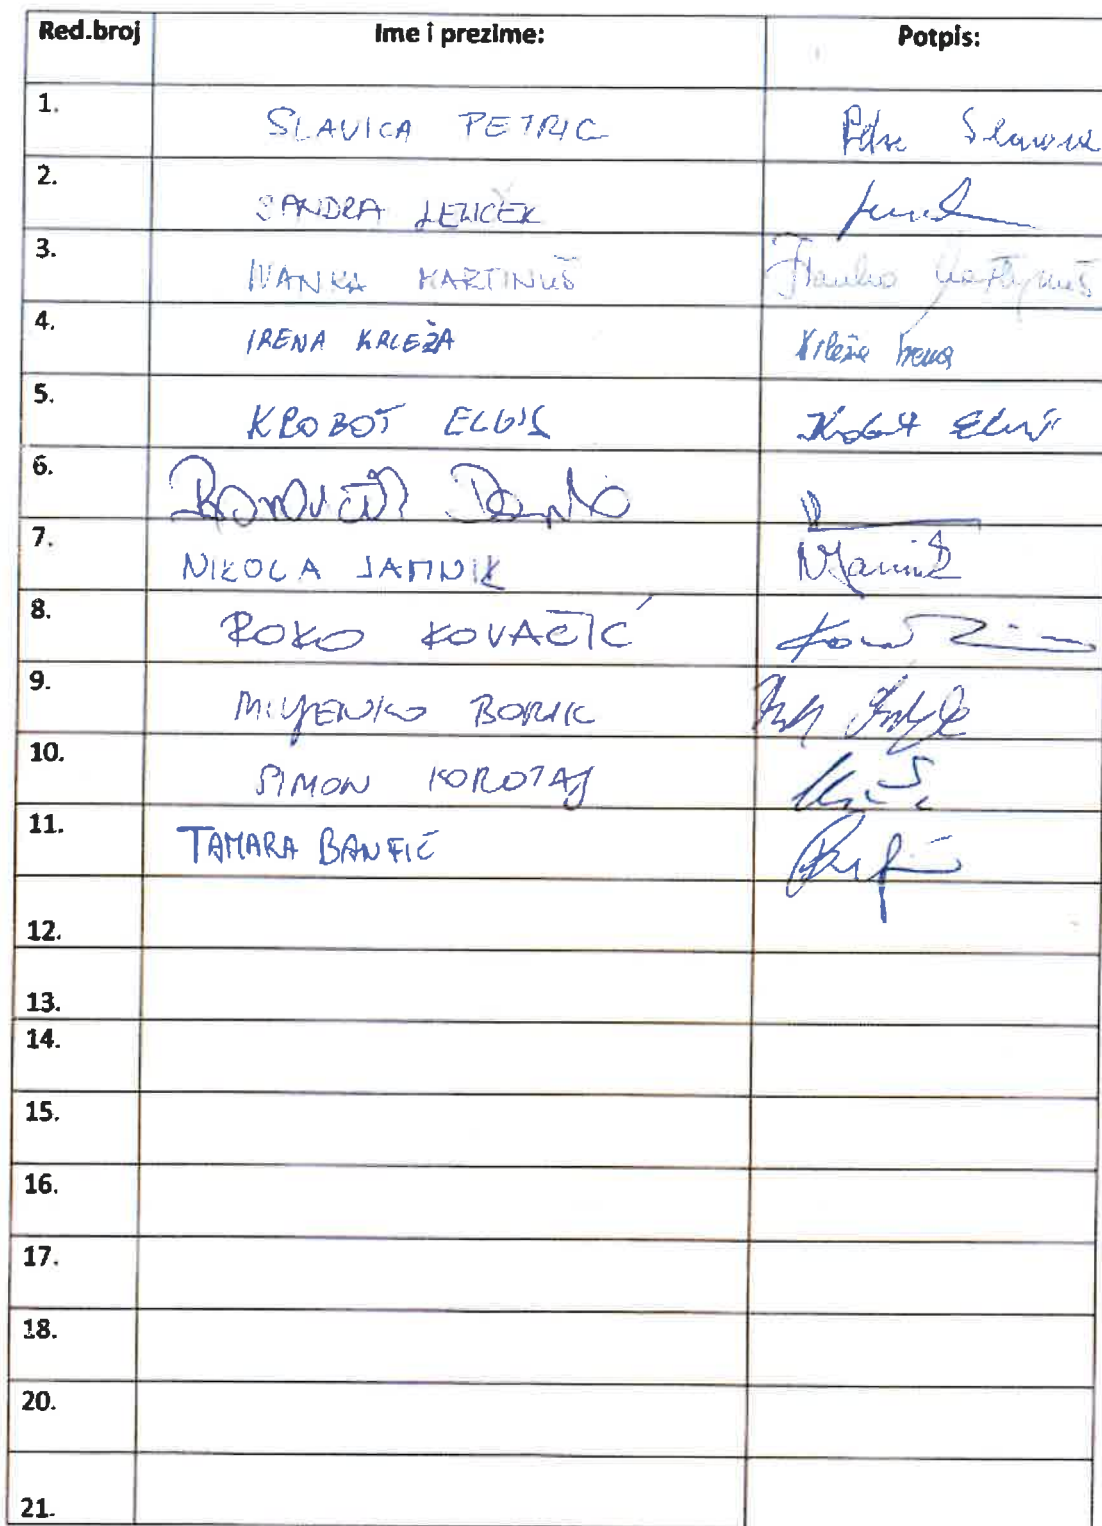 Red.broj Ime i prezime: Potpis:
1. SLAVICA PETRIC
2. SANDRA JEZIČEK
3. IVANKA MARTINUŠ Ivanka Martinuš
4. IRENA KRLEŽA Krleža Irena
5. KROBOT ELVIS Krobot Elvis
6.
7. NIKOLA JAMNIK NJamnik
8. ROKO KOVAČIĆ
9. MILJENKO BORIĆ
10. SIMON KOROTAJ
11. TAMARA BANFIĆ
12.
13.
14.
15.
16.
17.
18.
20.
21.